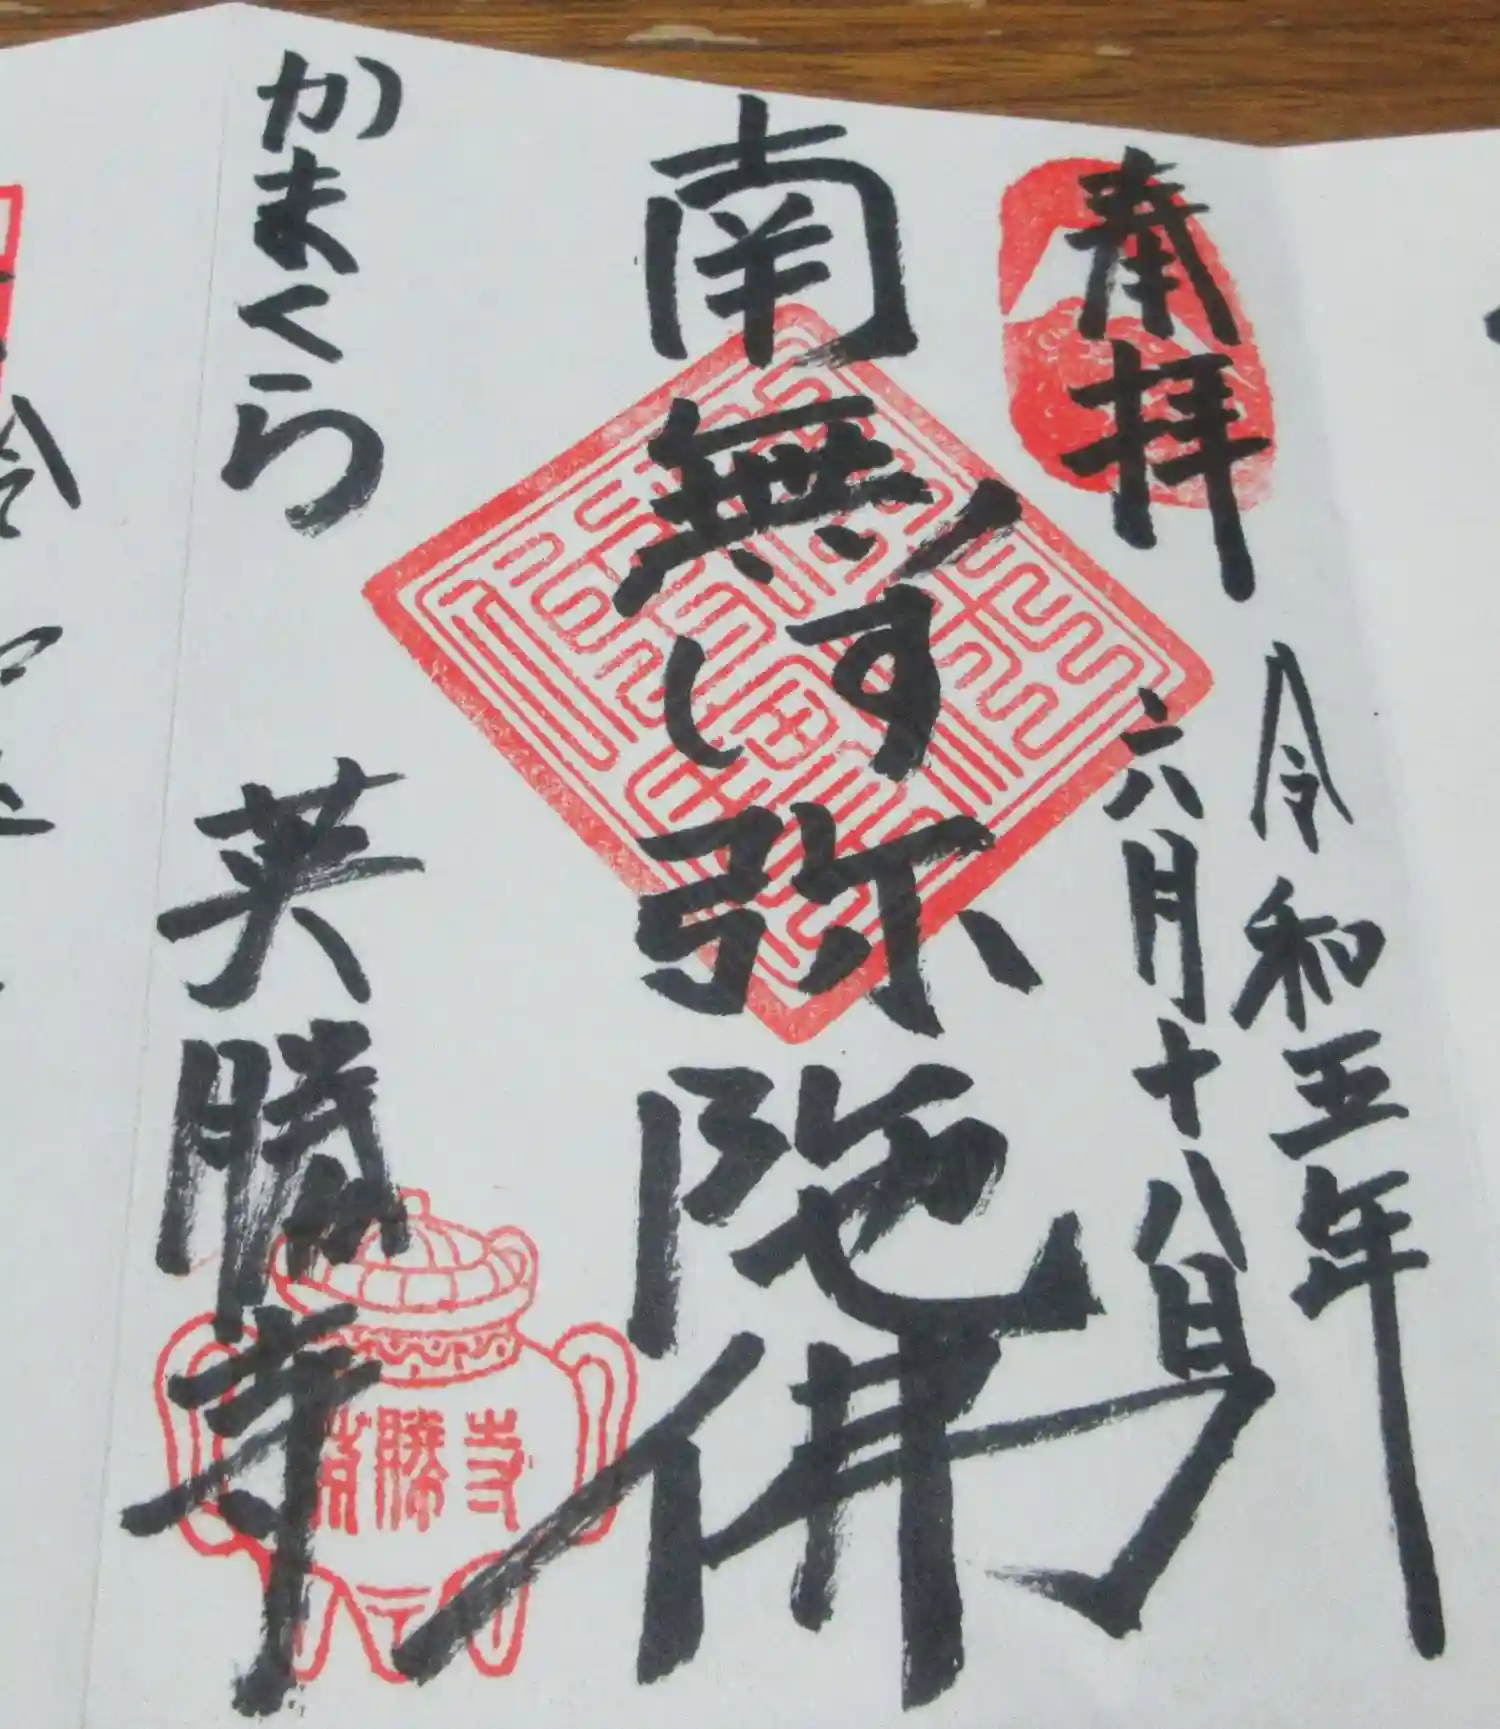 奉拝
令和五年
六月十八日
南無阿弥陀佛
かまくら 英勝寺
英勝寺